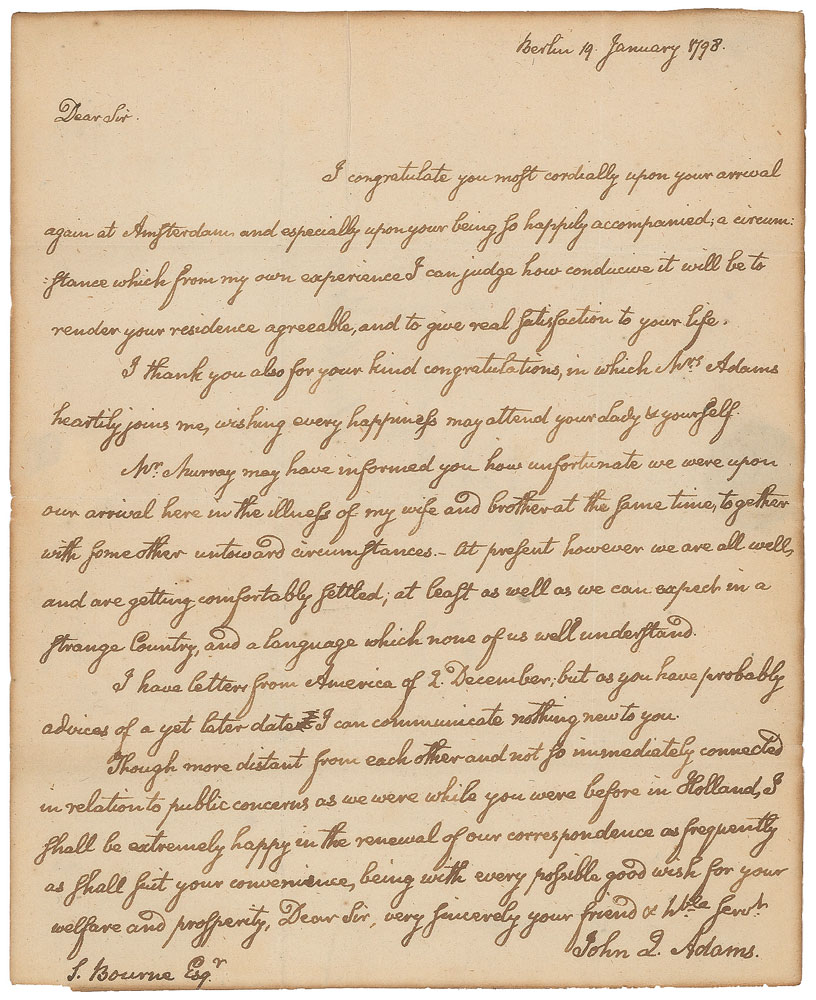 Berlin 19. January 1798.
Dear Sir.
I congratulate you most cordially upon your arrival
again at Amsterdam, and especially upon your being so happily accompanied; a circum:
:stance which from my own experience I can judge how conducive it will be to
render your residence agreeable, and to give real satisfaction to your life.
I thank you also for your kind congratulations, in which Mrs Adams
heartily joins me, wishing every happiness may attend your Lady & yourself.
Mr. Murray may have informed you how unfortunate we were upon
our arrival here in the illness of my wife and brother at the same time, together
with some other untoward circumstances.- At present however we are all well,
and are getting comfortably settled; at least as well as we can expect in a
strange Country, and a language which none of us well understand.
I have letters from America of 2. December; but as you have probably
advices of a yet later date I can communicate nothing new to you.
Though more distant from each other and not so immediately connected
in relation to public concerns as we were while you were before in Holland, I
shall be extremely happy in the renewal of our correspondence as frequently
as shall suit your convenience, being with every possible good wish for your
welfare and prosperity, Dear Sir, very sincerely your friend & hble servt.
John Q. Adams.
S. Bourne Esqr